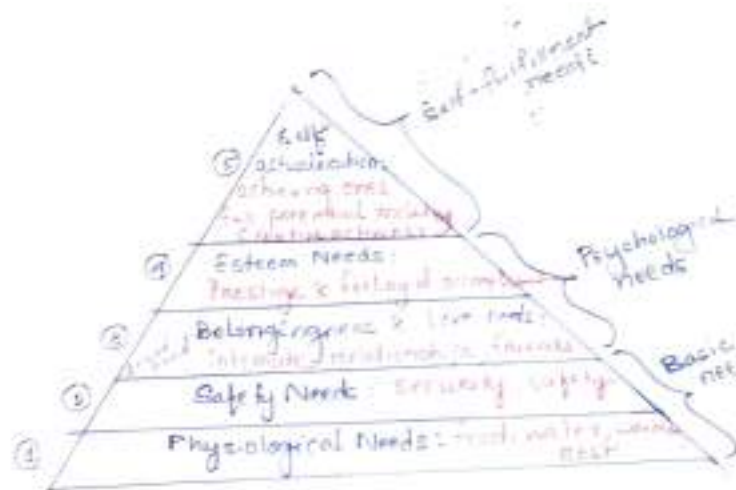 Self-fulfilment
needs
⑤ Self
actualization:
achieving ones
full potential including
creative activities
④ Esteem Needs:
Prestige & feeling of
Psychological
needs
③ Belongingness & Love needs:
intimate relationships, friends
② Safety Needs: security, safety
Basic
① Physiological Needs: food, water,
rest